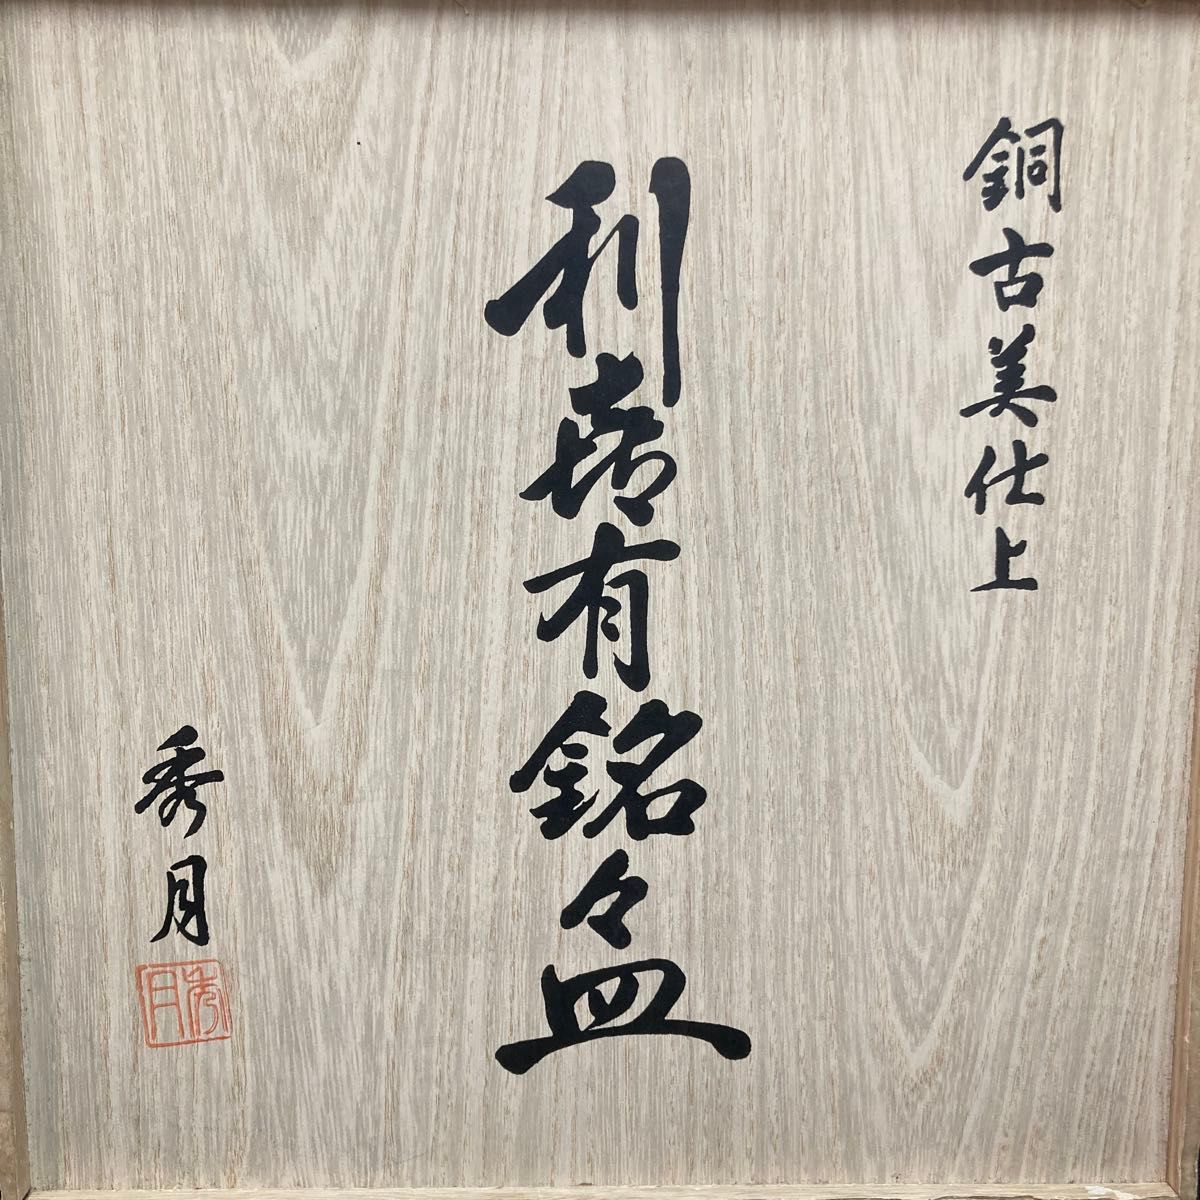 銅古美仕上
利喜有銘々皿
秀月
秀月